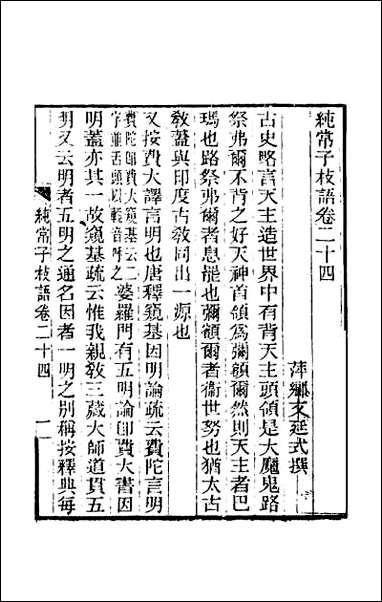 純常子枝語卷二十四
萍鄉文廷式撰
古史略言天主造世界中有背天主頭領是大魔鬼路
祭弗爾不背之好天神首領爲彌額爾然則天主者巴
瑪也路祭弗爾者息毗也彌額爾者衞世努也猶太古
敎蓋與印度古敎同出一源也
又按費大譯言明也唐釋窺基因明論疏云費陀言明
費陀卽費大窺基云二
字並舌頭以輕音呼之
婆羅門有五明論卽費大書因
明蓋亦其一故窺基疏云惟我親敎三藏大師道貫五
明又云明者五明之通名因者一明之別稱按釋典每
純常子枝語卷二十四
一